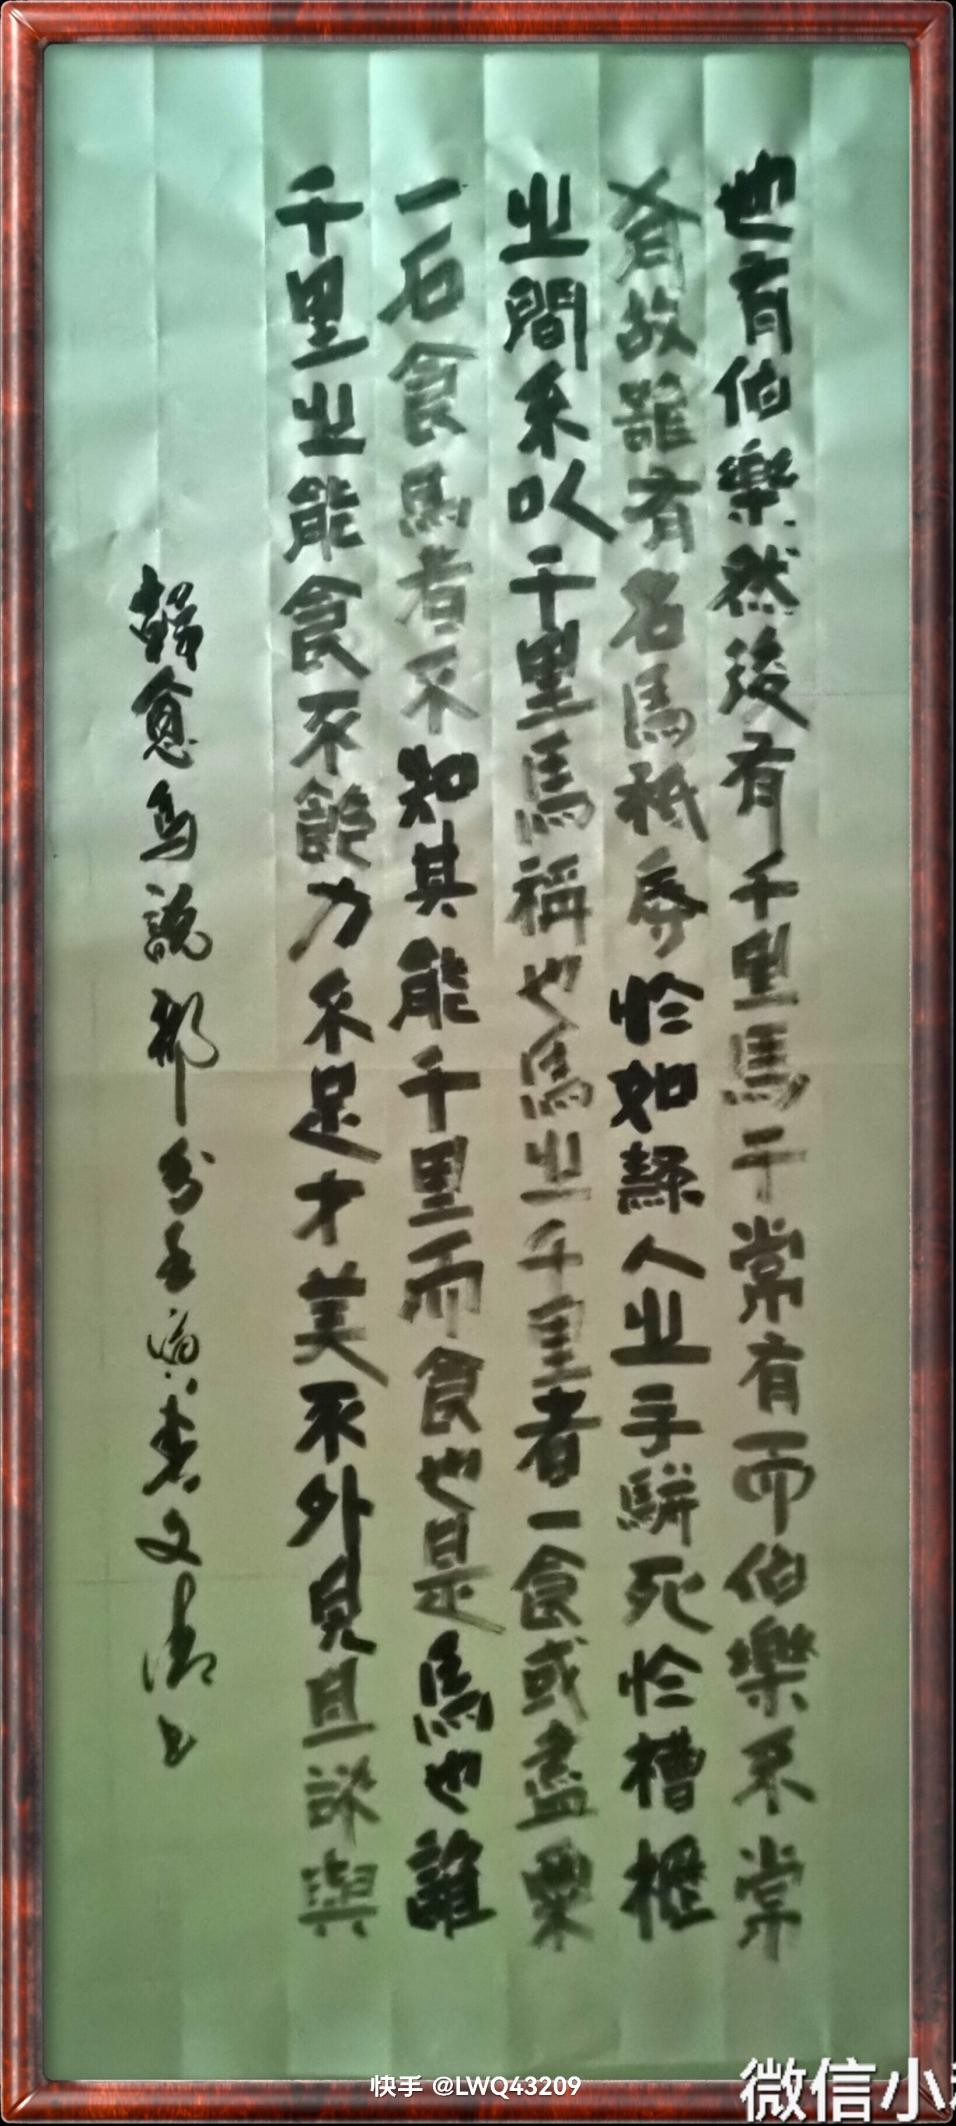 世有伯樂然後有千里馬千常有而伯樂不常
有故雖有名馬祗辱於如隸人之手駢死於槽櫪
之間不以千里馬稱也馬之千里者一食或盡粟
一石食馬者不知其能千里而食也是馬也雖
千里之能食不飽力不足才美不外見且欲與
韓愈馬說
文清
快手 @LWQ43209
微信小